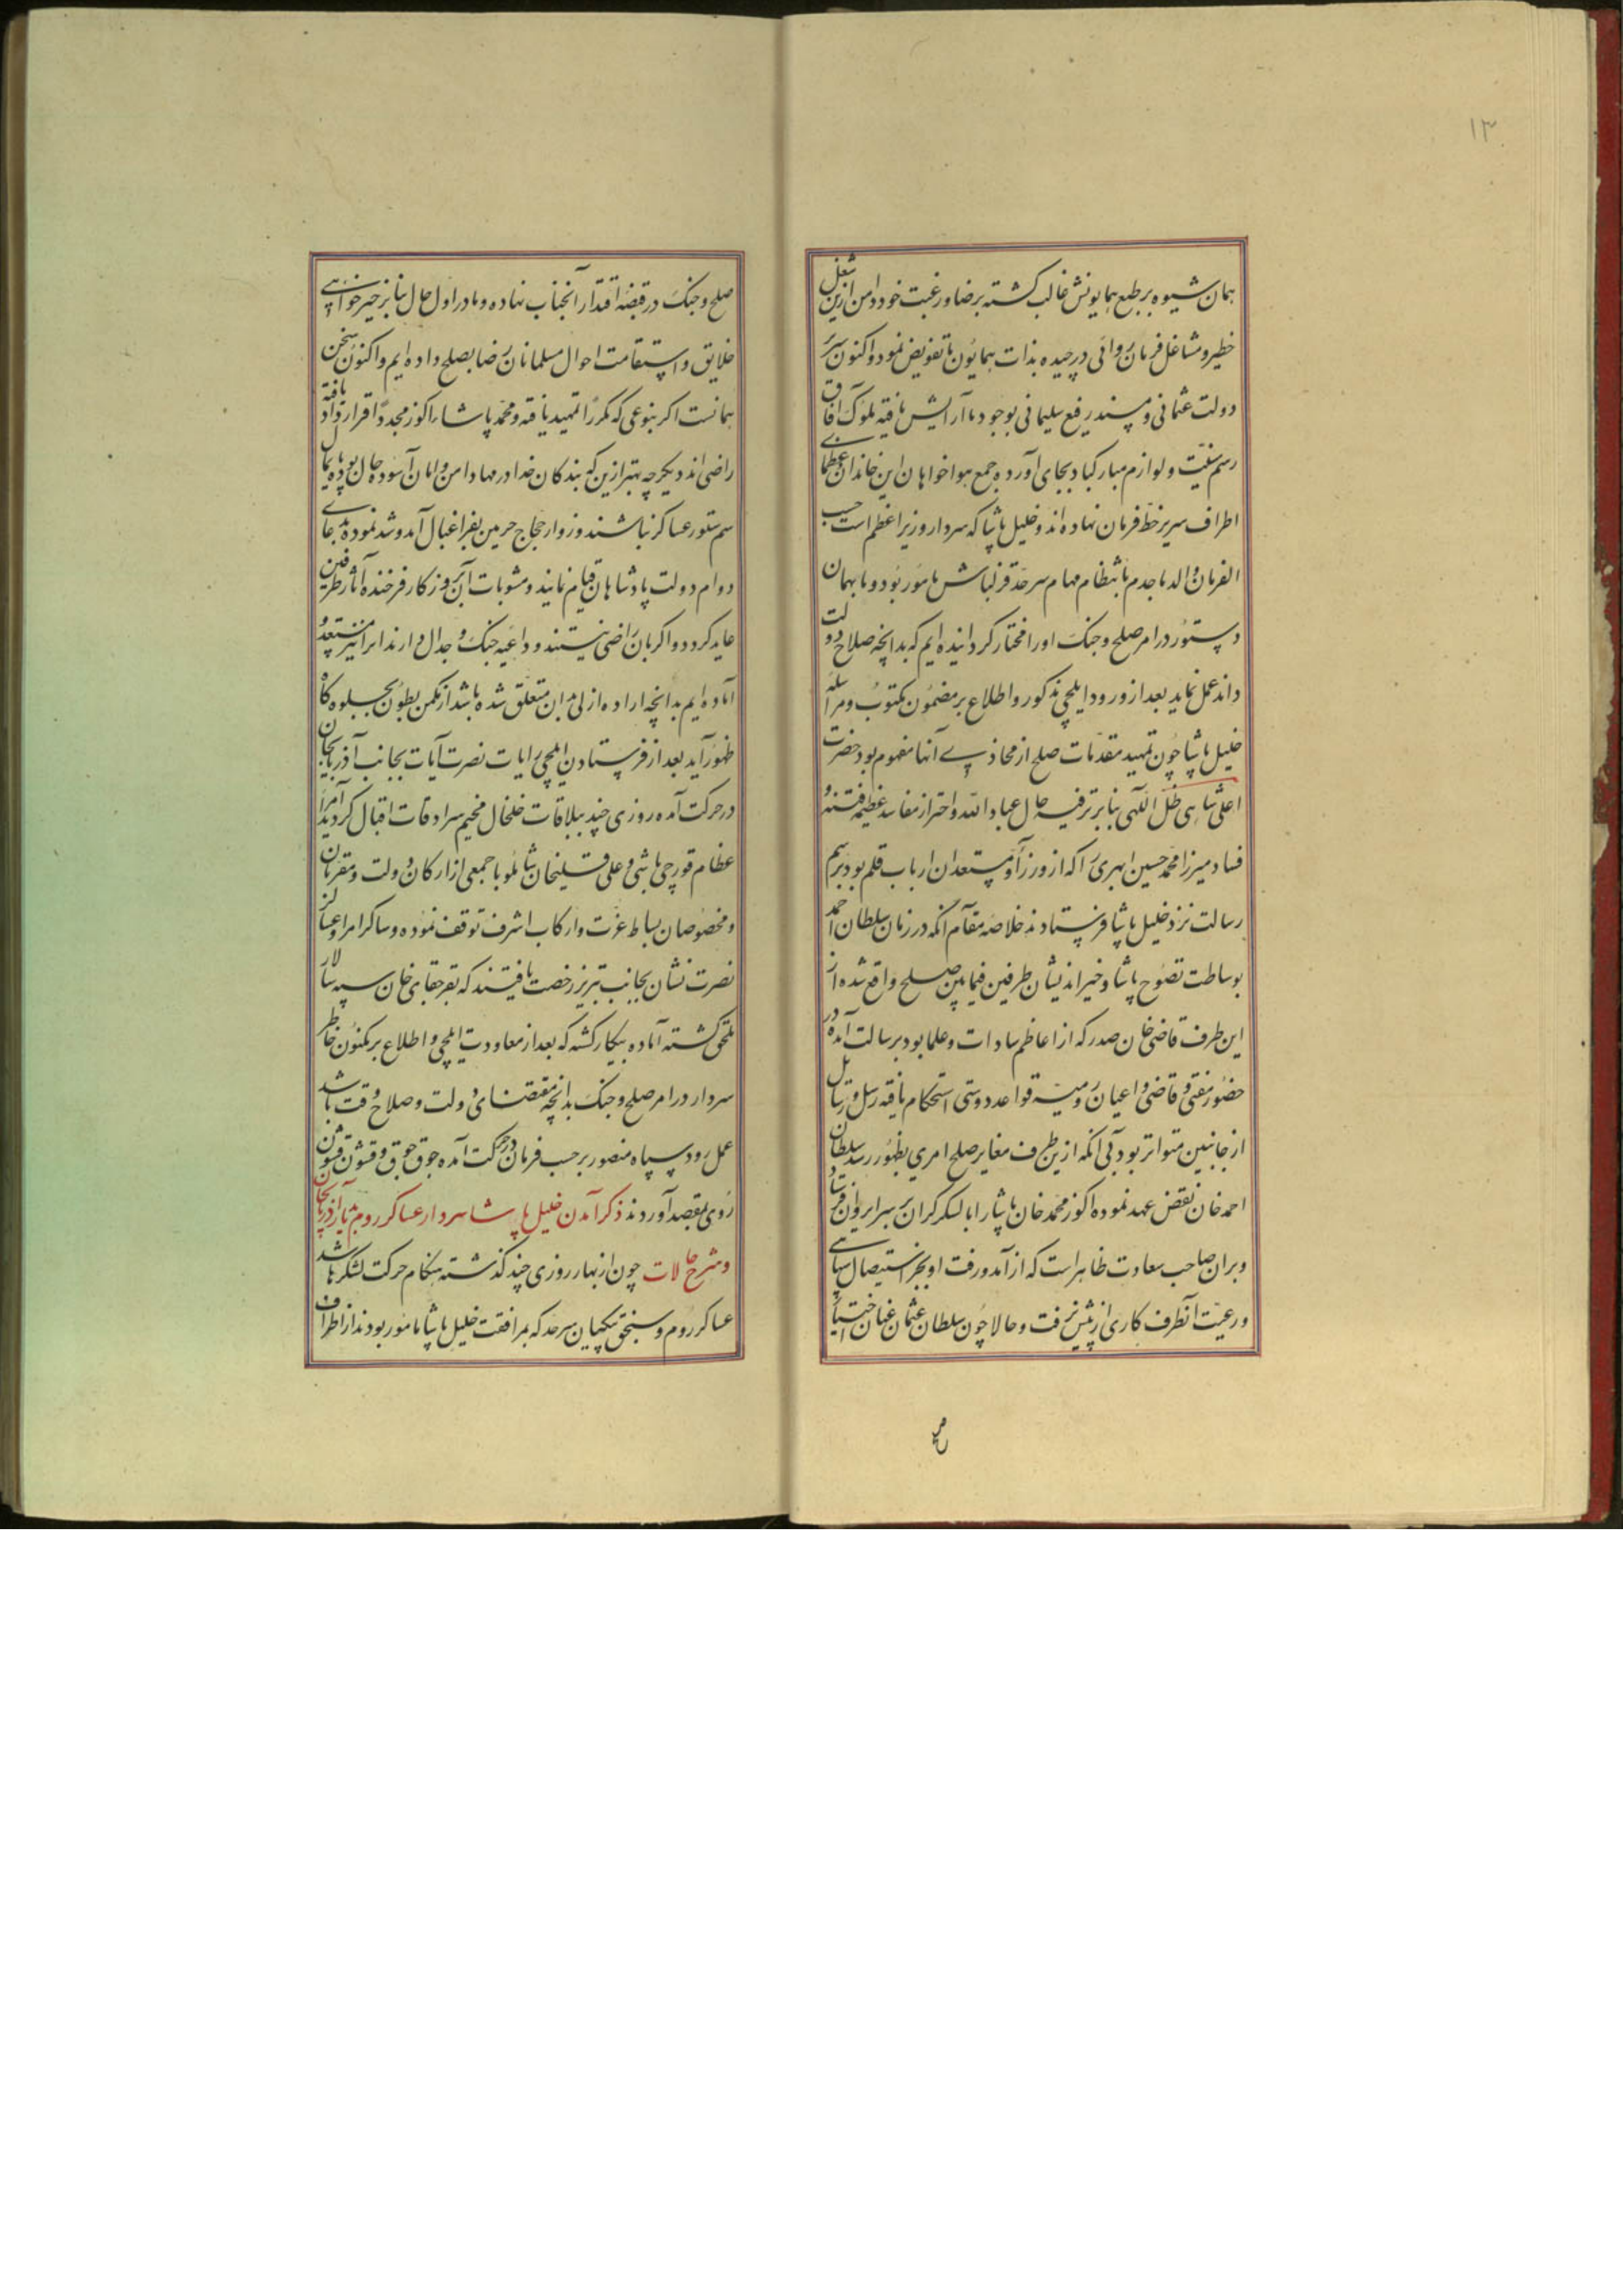 ۱۳
همان شیوه بر طبع همایونش غالب کشته برضا و رغبت خود دامن ازین شغل
خطیر و مشاغل فرمان روائی درچیده بذات همایون ما تفویض نمود و اکنون سریر
دولت عثمانی و مسند رفیع سلیمانی بوجود ما آرایش یافته ملوک آفاق
رسم تهنیت و لوازم مبارکباد بجای آورده جمیع هواخواهان این خاندان عظمای
اطراف سر بر خط فرمان نهاده اند و خلیل پاشا که سردار و وزیر اعظم است حسب
الفرمان والد ماجدم بانتظام مهام سرحد قزلباش مامور بود و ما بهمان
دستور در امر صلح و جنک او را مختار کردانیده ایم که بدانچه صلاح دولت
داند عمل نماید بعد از ورود ایلچی مذکور و اطلاع بر مضمون مکتوب و مراسله
خلیل پاشا چون تمهید مقدمات صلح از محاذی آنها مفهوم بود حضرت
اعلی شاهی ظل اللهی بنابر ترفیه حال عباد الله و احتراز مفاسد عظیمه فتنه و
فساد میرزا محمد حسین ابهری را که از وزرا و مستعدان ارباب قلم بود برسم
رسالت نزد خلیل پاشا فرستادند خلاصه مقام آنکه در زمان سلطان احمد
بوساطت نصوح پاشا و خیراندیشان طرفین فیمابین صلح واقع شده از
این طرف قاضی خان صدر که از اعاظم سادات و علما بود برسالت آمده در
حضور مفتی و قاضی و اعیان رومیه قواعد دوستی استحکام یافته رسل و رسائل
از جانبین متواتر بود بی آنکه ازین طرف مغایر صلح امری بظهور رسد سلطان
احمد خان نقض عهد نموده اکوز محمد خان پاشا را با لشکر کران بر سر ایروان فرستاد
و بران صاحب سعادت ظاهر است که از آمد و رفت او بجز استیصال سپاهی
و رعیت آنطرف کاری از پیش نرفت و حالا چون سلطان عثمان عنان اختیار
صلح و جنک در قبضه اقتدار آنجناب نهاده و ما در اول حال بنابر خیرخواهی
خلایق و استقامت احوال مسلمانان رضا بصلح داده ایم و اکنون سخن
همانست اکر بنوعی که مکررا تمهید یافته و محمد پاشا را کوز مجددا قرار داد یافته
راضی اند دیکر چه بهتر ازین که بندکان خدا در مهاد امن و امان آسوده حال بوده پایمال
سم ستور عساکر نباشند و زوار حجاج حرمین بفراغبال آمد و شد نموده بدعای
دوام دولت پادشاهان قیام نمایند و مثوبات آن بروزکار فرخنده آثار طرفین
عاید کردد و اکر بان راضی نیستند و داعیه جنک و جدال دارند ما برای نیز مستعد و
آماده ایم بدانچه اراده ازلی بدان متعلق شده باشد از مکمن بطون بجلوه کاه
ظهور آید بعد از فرستادن ایلچی رایات نصرت آیات بجانب آذربایجان
در حرکت آمده روزی چند ییلاقات خلخال مخیم سرادقات اقبال کردید امرا
عظام قورچی باشی و علی قلیخان شاملو با جمعی از ارکان دولت و مقربان
و مخصوصان بساط عزت در رکاب اشرف توقف نموده و ساکر امرا و عساکر
نصرت نشان بجانب تبریز رخصت یافتند که بقرچقای خان سپه سالار
ملحق کشته آماده پیکار کشته که بعد از معاودت ایلچی و اطلاع بر مکنون خاطر
سردار در امر صلح و جنک بدانچه مقتضای دولت و صلاح وقت باشد
عمل رود سپاه منصور برحسب فرمان در حرکت آمده جوق جوق و قشون قشون
روی بمقصد آوردند ذکر آمدن خلیل پاشا سردار عساکر روم بدیار آذربایجان
و شرح حالات چون از بهار روزی چند کذشته هنکام حرکت لشکرها شد
عساکر روم و سنجق بیکیان سرحد که بمرافقت خلیل پاشا مامور بودند از اطراف